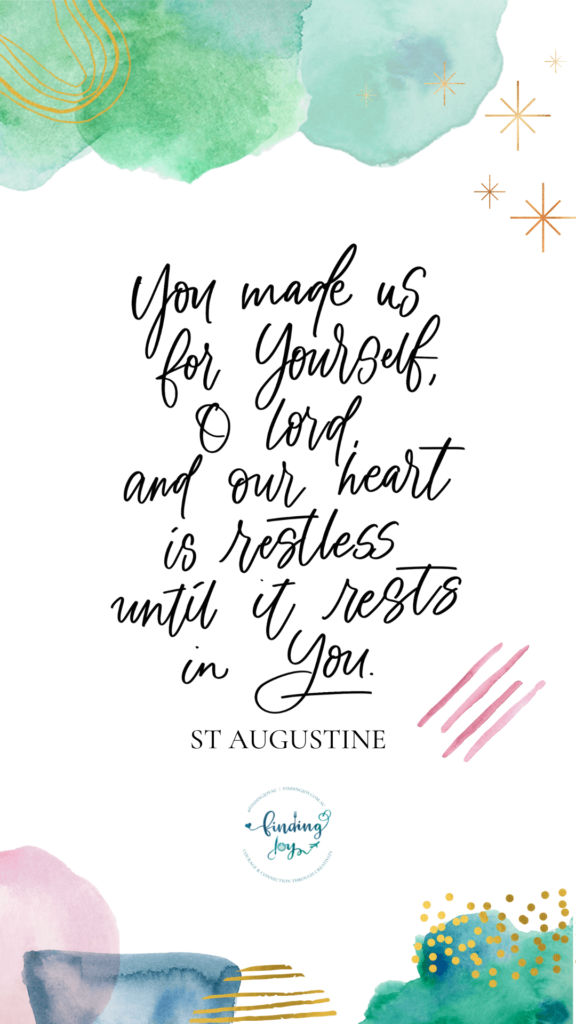 You made us
for Yourself,
O lord,
and our heart
is restless
until it rests
in You.
ST AUGUSTINE
finding
joy
COURAGE & CONNECTION THROUGH CREATIVITY